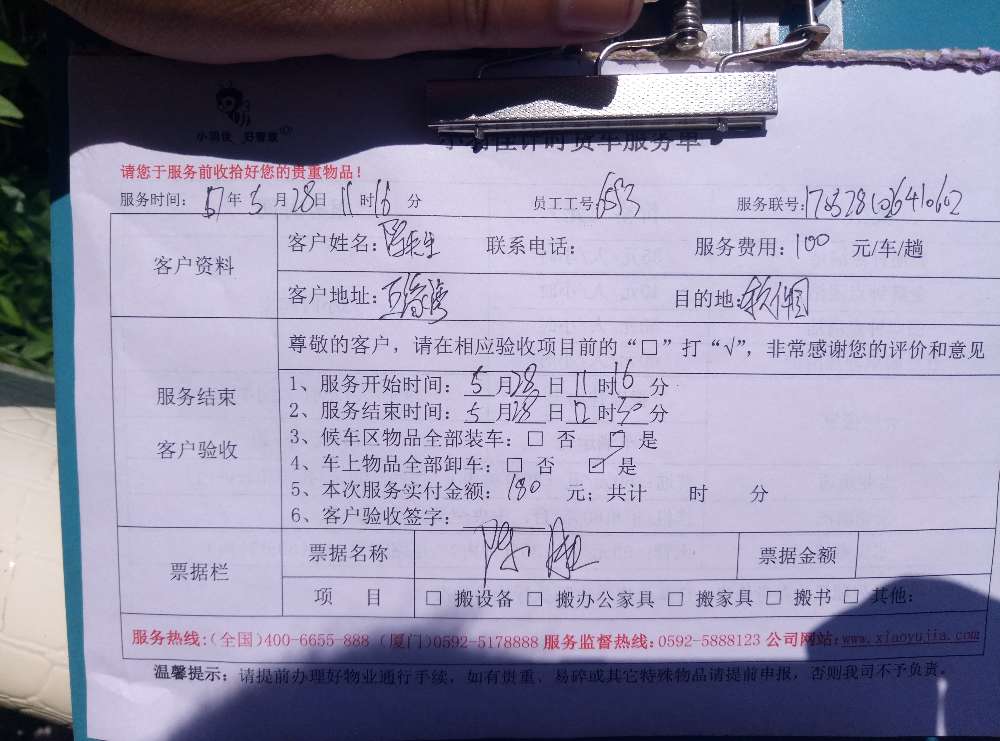 小羽佳 好管家
小羽佳计时货车服务单
请您于服务前收拾好您的贵重物品！
服务时间： 17年 5 月 28日 11 时16 分 员工工号: 服务联号:
客户资料
客户姓名: 陈先生 联系电话： 服务费用：100 元/车/趟
客户地址: 五缘湾 目的地: 软件园
服务结束
客户验收
尊敬的客户，请在相应验收项目前的“□”打“√”，非常感谢您的评价和意见
1、服务开始时间： 5 月28 日 11 时16 分
2、服务结束时间： 5 月28 日 12 时30 分
3、候车区物品全部装车：□ 否 □ 是
4、车上物品全部卸车：□ 否 ☑ 是
5、本次服务实付金额：180 元；共计 时 分
6、客户验收签字：
票据栏
票据名称 票据金额
项 目 □ 搬设备 □ 搬办公家具 □ 搬家具 □ 搬书 □ 其他：
服务热线：(全国)400-6655-888 (厦门)0592-5178888 服务监督热线：0592-5888123 公司网站：www.xiaoyujia.com
温馨提示：请提前办理好物业通行手续，如有贵重、易碎或其它特殊物品请提前申报，否则我司不予负责。